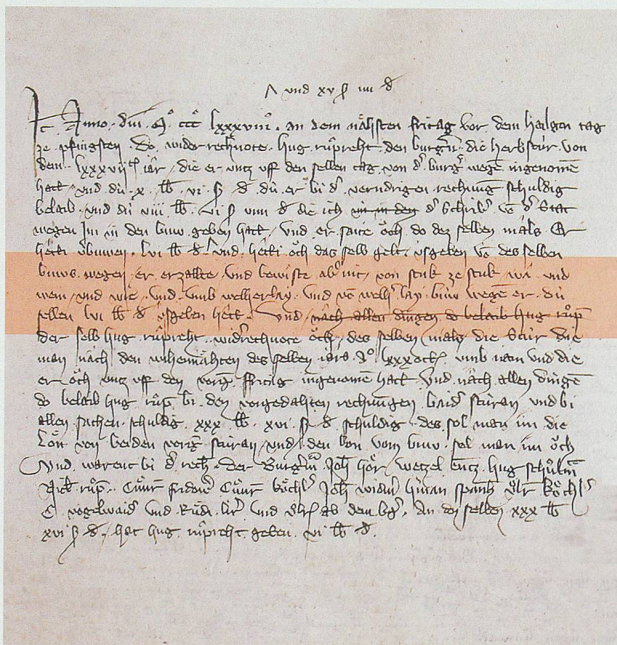 vnd xv ß iiii d
Anno dni Mº ccc lxxxviiiº an dem nåhsten fritag vor dem heilgen tag
ze pfingsten do widerrechnote Hug růpreht den burgern die herbstúr von
dem lxxxvij iar die er vntz vff den selben tag von d' burg' wegen ingenomen
hatt vnd dú x lb vi ß d dú er bi d' vorndrigen rechnung schuldig
belaib vnd dú viii lb vi ß d die ich d' Schrib' d' Statt
wegen im in den buw geben hatt vnd er saite öch do des selben mals Er
hetti v'buwen lvi lb d vnd hetti öch das selb gelt vsgeben vo des selben
buws wegen er erzalte vnd bewiste ab mit von stuk ze stuk wa vnd
wem vnd wie vnd vmb welherlay vnd vo welh'lay buw wegen er dú
selben lvi lb d vsgeben hett vnd nach allen dingen do belaib hug růp
der selb hug růpreht widerrechnote öch des selben mals die Stúr die
man nach den wihennåhten des selben iars vmb nam vnd die
er öch vntz vff den vorg fritag ingenomen hatt vnd nach allen dingen
do belaib hug růp bi den vorgedahten rechnungen baid' stúran vnd bi
allen sachen schuldig xxx lb xvi ß d schuldig des sol man im die
lön von beiden vorg stúran vnd den lon vom buw sol man im öch
Vnd warent bi d' rech der Burg'm Joh hör wetzel hug schulth
růp Cůnr fridow' Cůnr Joh hman
vogelwaid' vnd Růdi vnd vlr ab dem An den selben xxx lb
xvi ß d hat hug růpreht geben vi lb d